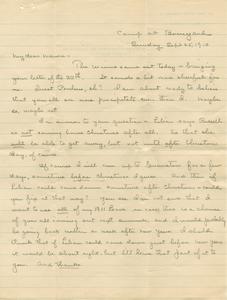 Camp at
Sunday, Sept 25, 1910
My dear Mama -
The came out today - bringing
your letter of the 20th. It sounds a bit more cheerful for
me. Sweet , eh? I am about ready to believe
that you all are more than I. Maybe
so, maybe not.
In answer to your question - Lilian says Russell
is not coming home Christmas after all. So that she
will be able to get away, but not until after Christmas
Day, of course.
Of course I will can up to for a few
days, sometime before Christmas I guess. And then if
Lilian could come down sometime after Christmas - could
you fix it that way? You see I'm not sure that I
want to use all of my 1911 leave in case there is a chance
of you all coming out next summer. and I would probably
be going back within a week after New Years. I should
think that if Lilian could come down just before New Years
it would be about right. but I'll leave that part of it to
you. And